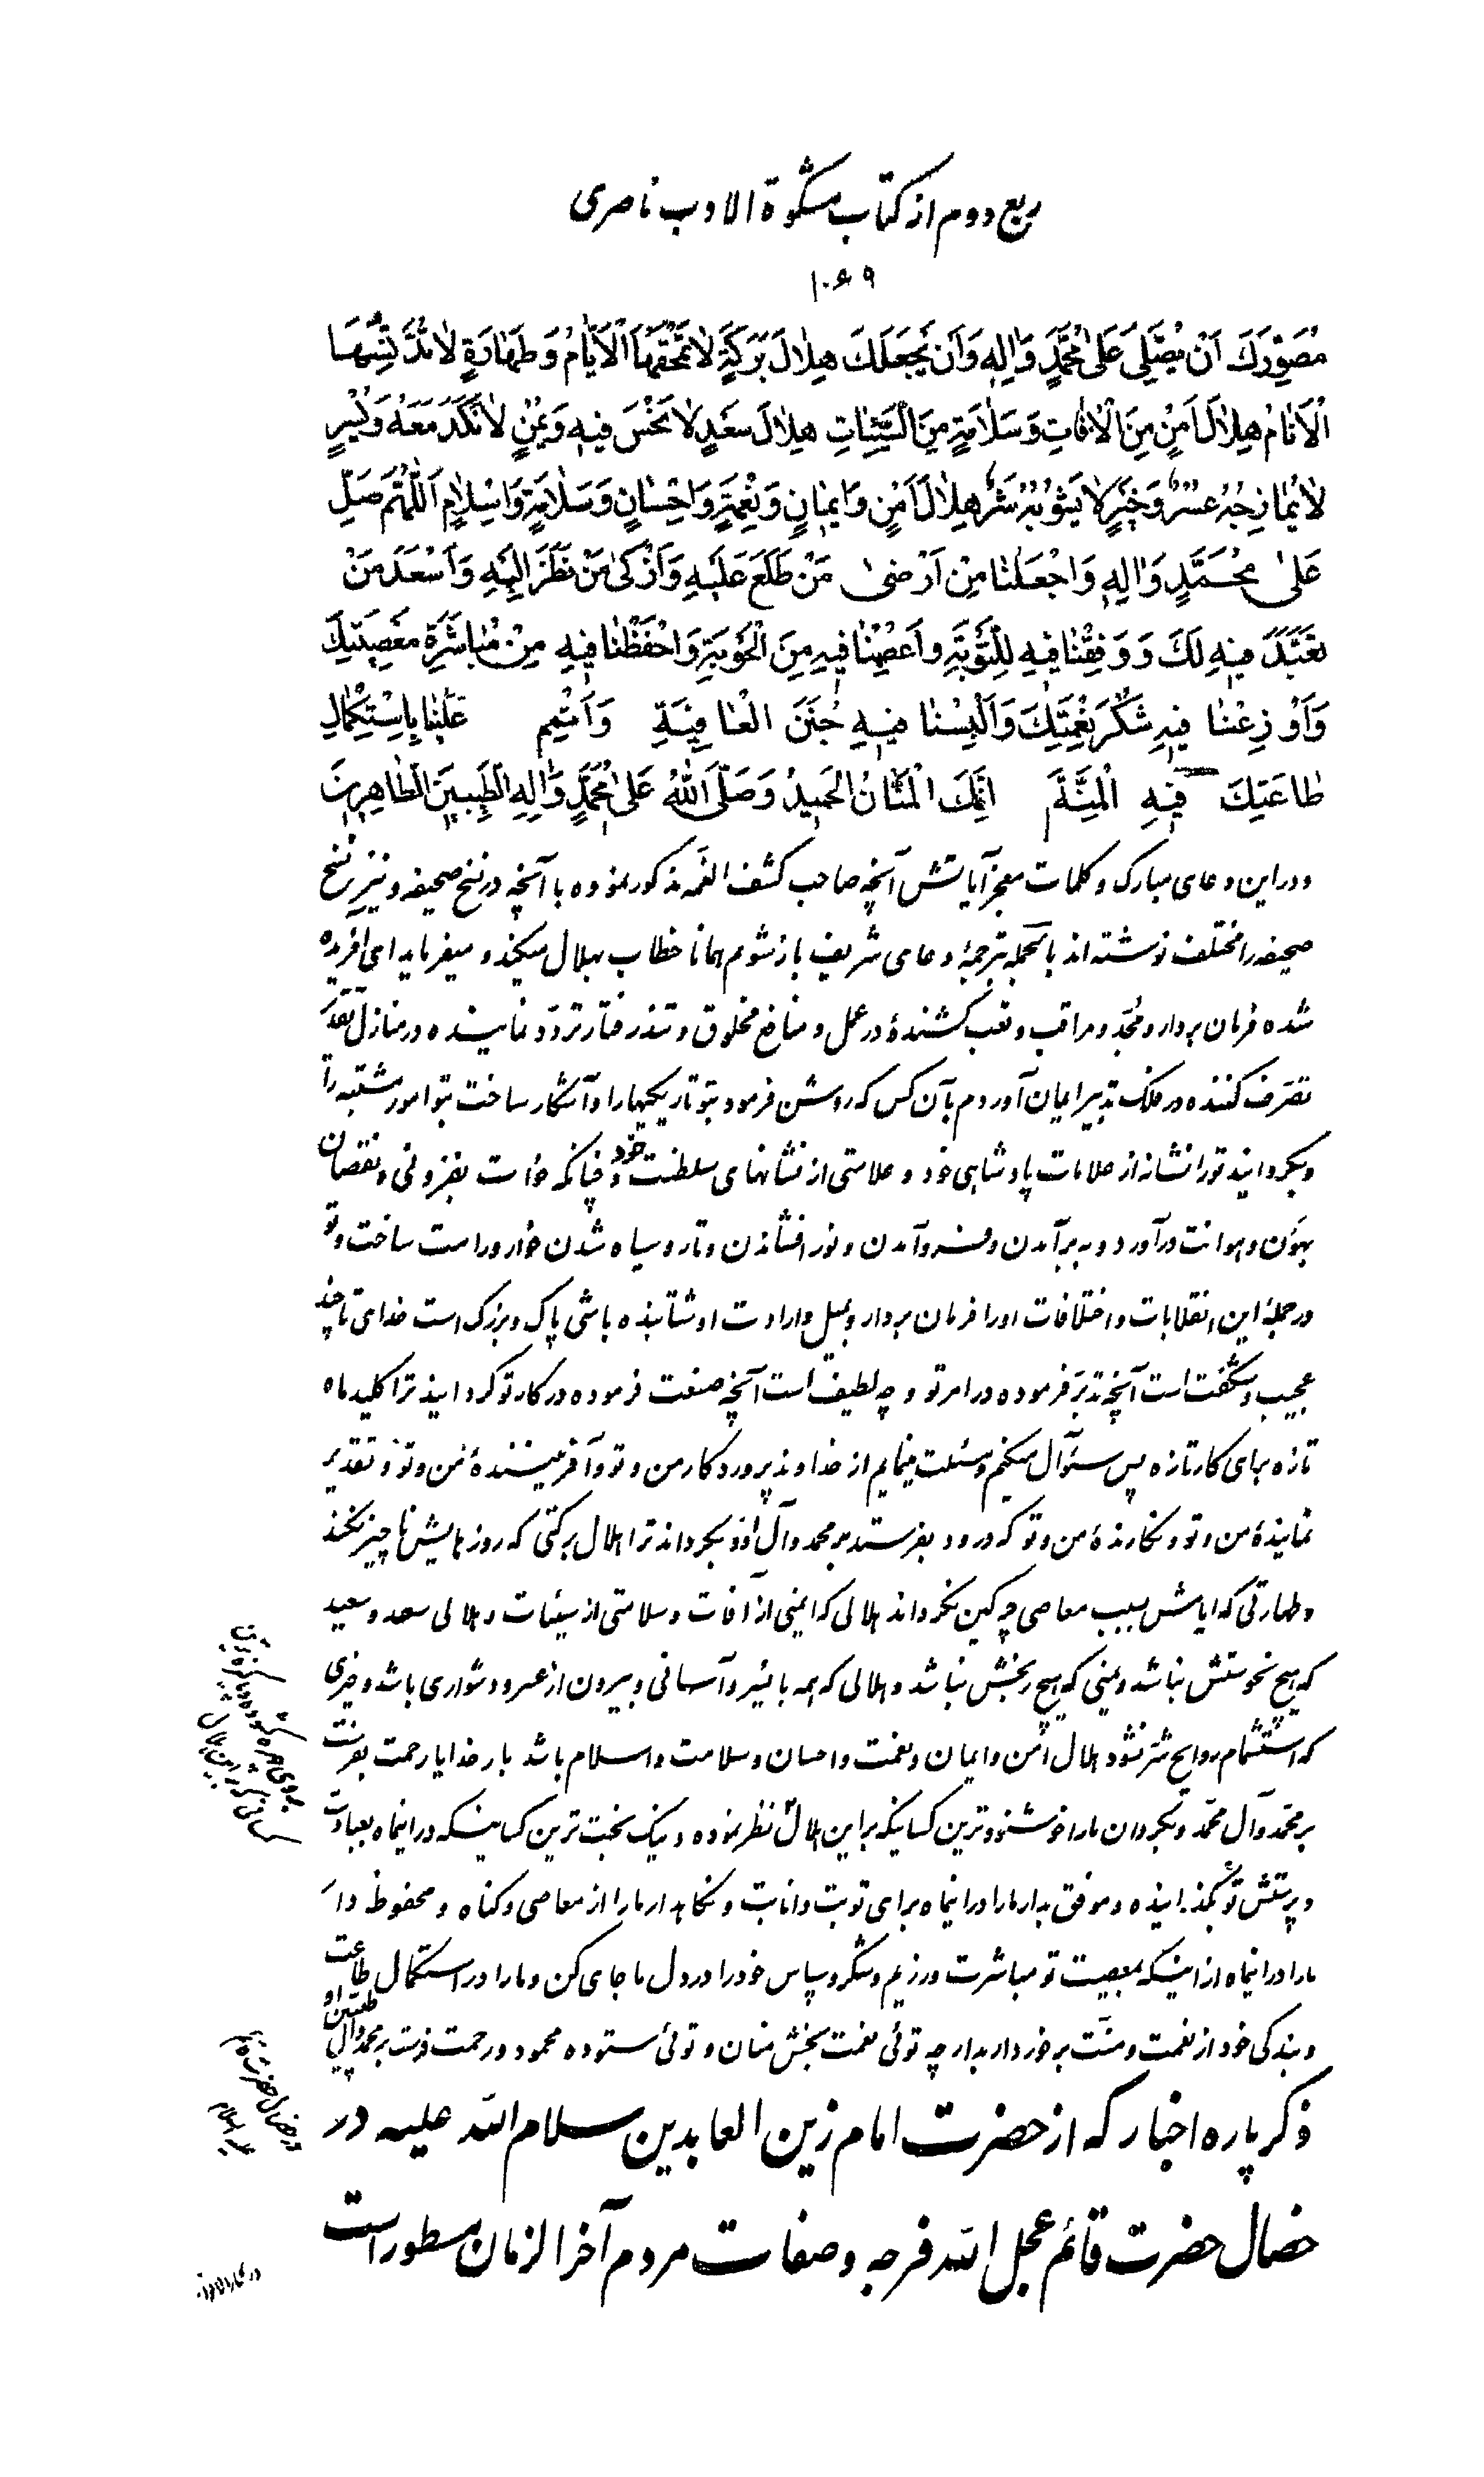 ربع دوم از کتاب مشکوة الادب ناصری
۱۰۶۹
مُصَوِّرَكَ اَنْ يُصَلِّىَ عَلىٰ مُحَمَّدٍ وَاٰلِهِ وَاَنْ يَجْعَلَكَ هِلاٰلَ بَرَكَةٍ لاٰ تَمْحَقُهَا الْاَيّٰامُ وَطَهٰارَةٍ لاٰ تُدَنِّسُهَا
الْاَثٰامُ هِلاٰلَ اَمْنٍ مِنَ الْاٰفٰاتِ وَسَلاٰمَةٍ مِنَ السَّيِّئٰاتِ هِلاٰلَ سَعْدٍ لاٰ نَحْسَ فيهِ وَيُمْنٍ لاٰ نَكَدَ مَعَهُ وَيُسْرٍ
لاٰ يُمٰازِجُهُ عُسْرٌ وَخَيْرٍ لاٰ يَشُوبُهُ شَرٌّ هِلاٰلَ اَمْنٍ وَايمٰانٍ وَنِعْمَةٍ وَاِحْسٰانٍ وَسَلاٰمَةٍ وَاِسْلاٰمٍ اَللّٰهُمَّ صَلِّ
عَلىٰ مُحَمَّدٍ وَاٰلِهِ وَاجْعَلْنٰا مِنْ اَرْضىٰ مَنْ طَلَعَ عَلَيْهِ وَاَزْكىٰ مَنْ نَظَرَ اِلَيْهِ وَاَسْعَدَ مَنْ
تَعَبَّدَ فيهِ لَكَ وَوَفِّقْنٰا فيهِ لِلتَّوْبَةِ وَاعْصِمْنٰا فيهِ مِنَ الْحَوْبَةِ وَاحْفَظْنٰا فيهِ مِنْ مُبٰاشَرَةِ مَعْصِيَتِكَ
وَاَوْزِعْنٰا فيهِ شُكْرَ نِعْمَتِكَ وَاَلْبِسْنٰا فيهِ جُنَنَ الْعٰافِيَةِ وَاَتْمِم عَلَيْنٰا بِاِسْتِكْمٰالِ
طٰاعَتِكَ فيهِ الْمِنَّةَ اِنَّكَ الْمَنّٰانُ الْحَميدُ وَصَلَّى اللّٰهُ عَلىٰ مُحَمَّدٍ وَاٰلِهِ الطَّيِّبينَ الطّٰاهِرينَ
و در این دعای مبارک و کلمات معجز آیاتش آنچه صاحب کشف الغمه مذکور نموده با آنچه در نسخ صحیفه و نیز نسخ
صحیفه را مختلف نوشته اند بالجمله بترجمهٔ دعای شریف باز شویم همانا خطاب بهلال میکند و میفرماید ای آفریده
شده فرمان بردار و مجد و مراقب و تعب کشندهٔ در عمل و منافع مخلوق و تندرفتار تردد نماینده در منازل تقدیر
تصرف کننده در فلک تدبیر ایمان آوردم بآن کس که روشن فرمود بتو تاریکیها را و آشکار ساخت بتو امور مشتبه را
و بگردانید تو را نشانه از علامات پادشاهی خود و علامتی از نشانهای سلطنت خود و چنانکه خواست بفزونی و نقصان
بهون و هوانت درآورد و به برآمدن و فرو آمدن و نور افشاندن و تار و سیاه شدن خوار و راست ساخت و تو
در جملهٔ این انقلابات و اختلافات او را فرمان بردار و بمیل و ارادت او شتابنده باشی پاک و بزرک است خدای تا چند
عجیب و شگفت است آنچه تدبر فرموده در امر تو و چه لطیف است آنچه صنعت فرموده در کار تو گردانید ترا کلید ماه
تازه برای کار تازه پس سئوآل میکنم و مسئلت مینمایم از خداوند پروردکار من و تو و آفرینندهٔ من و تو و تقدیر
نمایندهٔ من و تو و نگارندهٔ من و تو که درود بفرستد بر محمد و آل او و بگرداند ترا هلال برکتی که روزهایش ناچیز نکند
و طهارتی که ایامش بسبب معاصی چرکین نگرداند هلالی که ایمنی از آفات و سلامتی از سیئات و هلالی سعد و سعید
که هیچ نحوستش نباشد و یمنی که هیچ رنجش نباشد و هلالی که همه با یسر و آسانی و بیرون از عسر و دشواری باشد و خیری
که استشمام روایح شر نشود هلال امن و ایمان و نعمت و احسان و سلامت و اسلام باشد بار خدایا رحمت بفرست
بر محمد و آل محمد و بگردان ما را خوشنودترین کسانیکه بر این هلال نظر نموده و نیک بخت ترین کسانیکه در اینماه بعبادت
و پرستش تو بگذرانیده و موفق بدار ما را در اینماه برای توبت و انابت و نگاهدار ما را از معاصی و گناه و محفوظ دار
ما را در اینماه از اینکه بمعصیت تو مباشرت ورزیم و شکر و سپاس خود را در دل ما جای کن و ما را در استکمال طاعت
و بندگی خود از نعمت و منت برخوردار بدار چه توئی نعمت بخش منان و توئی ستوده محمود و رحمت فرست بر محمد و آل طیبین او
ذکر پاره اخبار که از حضرت امام زین العابدین سلام الله علیه در
خصال حضرت قائم عجل الله فرجه و صفات مردم آخر الزمان مسطور است